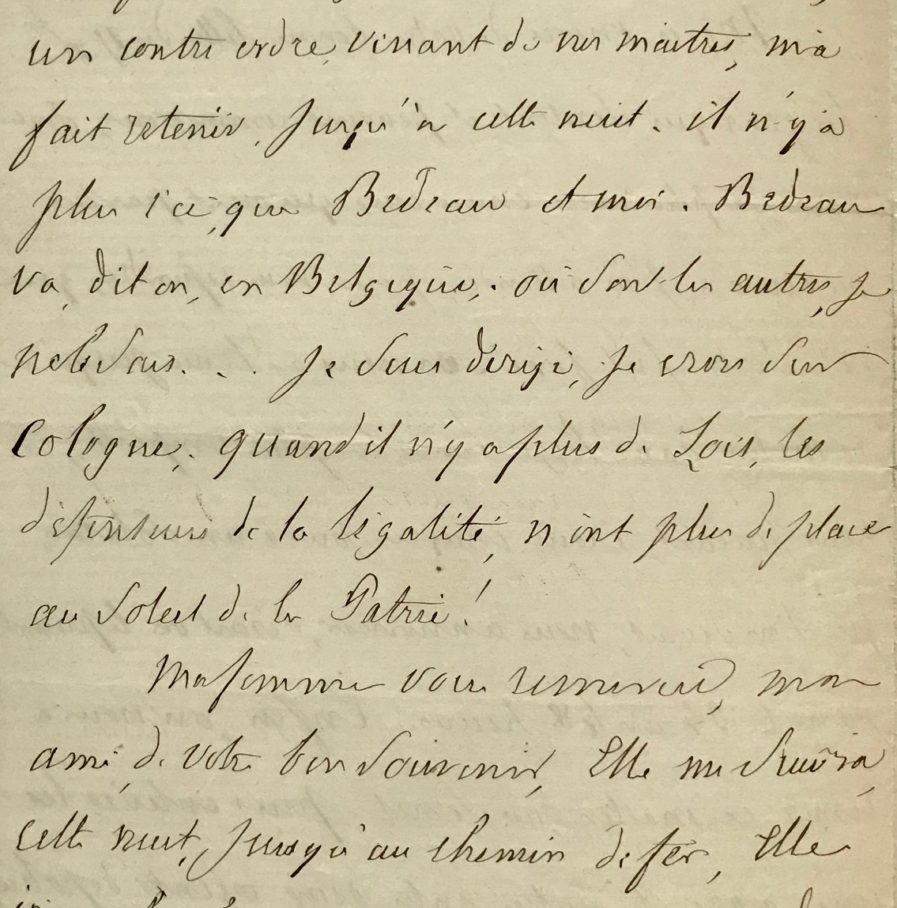 un contre ordre, venant de nos maitres, m'a
fait retenir, jusqu'à cette nuit. il n'y a
plus ici, que Bedeau et moi. Bedeau
va, dit on, en Belgique,. où sont les autres, je
ne le sais. . . je suis dirigé, je crois sur
Cologne,. quand il n'y a plus de Lois, les
défenseurs de la légalité, n'ont plus de place
au soleil de la Patrie!
Ma femme vous remercie, mon
ami, de votre bon souvenir, Elle me suivra,
cette nuit, jusqu'au chemin de fer, Elle